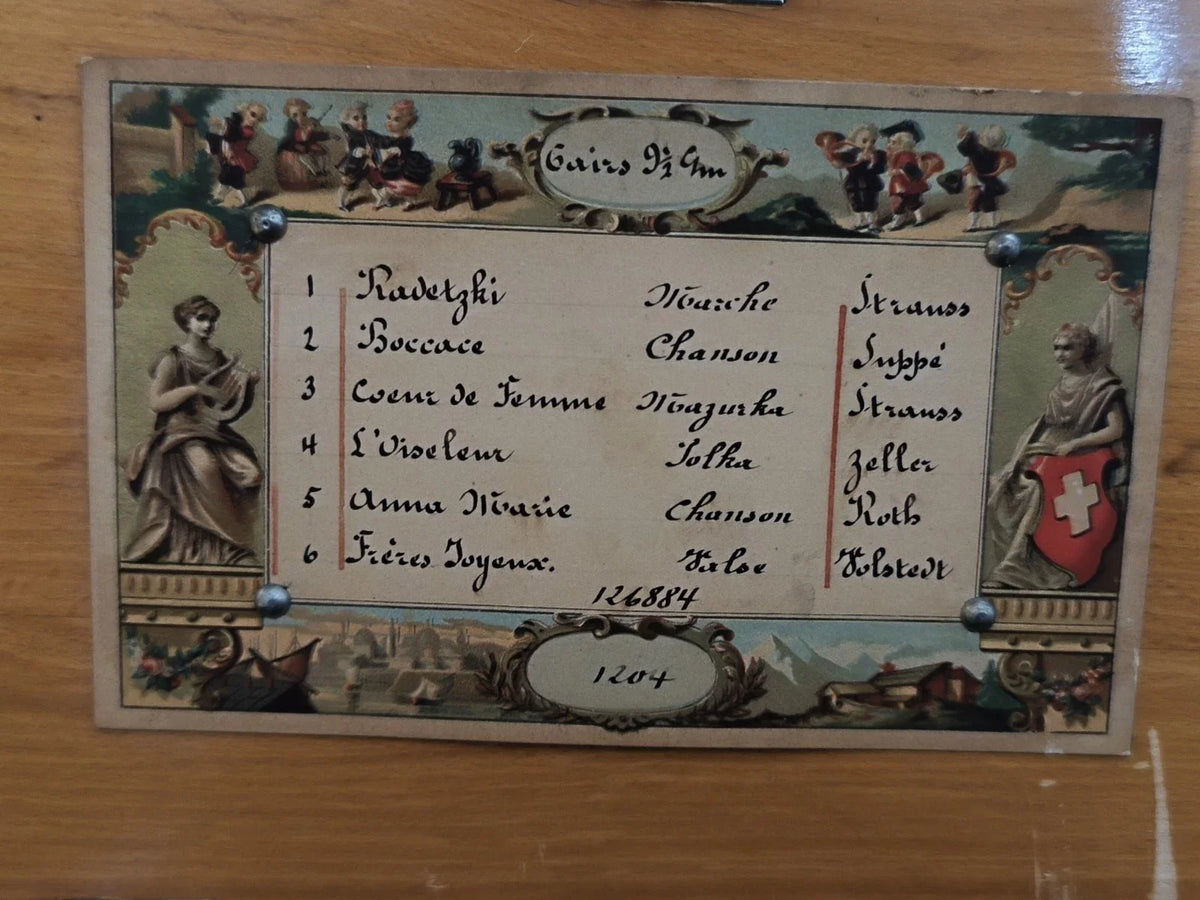 6 airs 9½ Cm
1 Radetzki Marche Strauss
2 Boccace Chanson Suppé
3 Coeur de Femme Mazurka Strauss
4 L'Oiseleur Polka Zeller
5 Anna Marie Chanson Roth
6 Frères Joyeux. Valse Volstedt
126884
1204